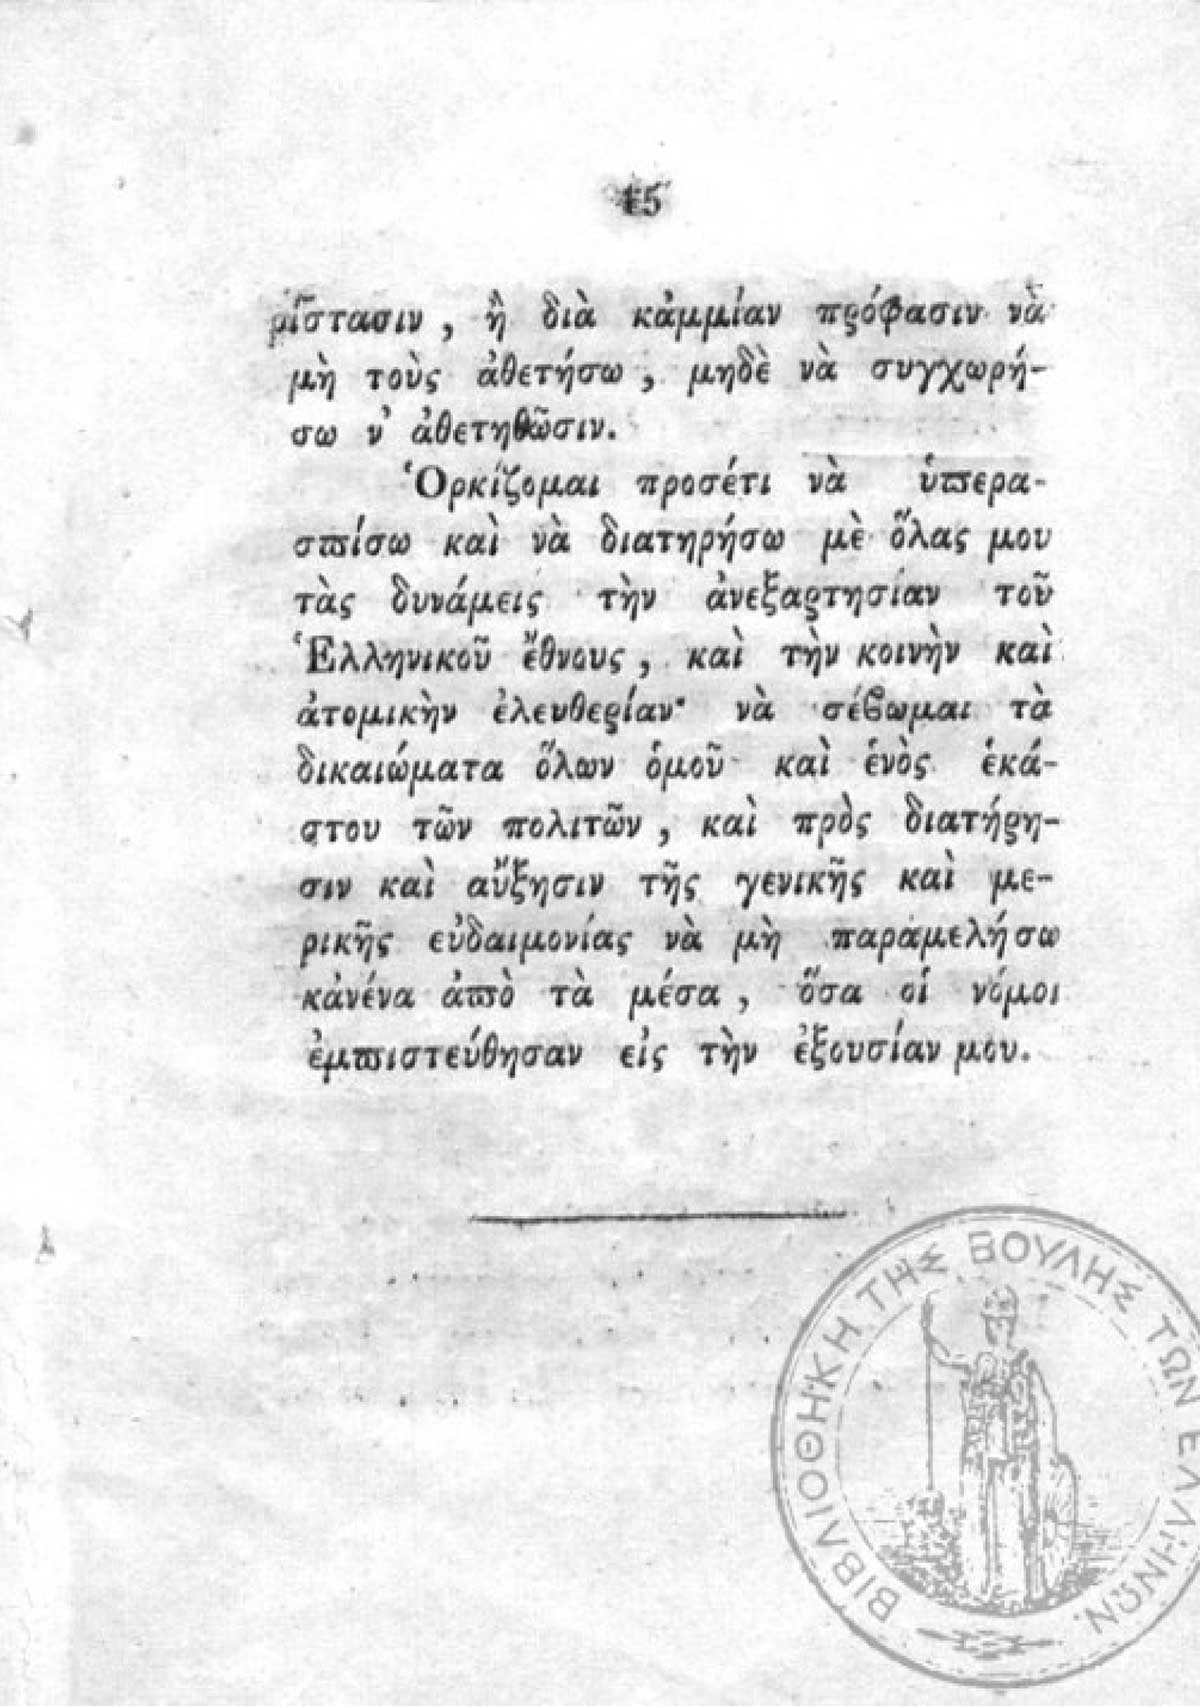 15
ρίστασιν, ἢ διὰ κἀμμίαν πρόφασιν νὰ
μὴ τοὺς ἀθετήσω, μηδὲ νὰ συγχωρή-
σω ν' ἀθετηθῶσιν.
Ὁρκίζομαι προσέτι νὰ ὑπερα-
σπίσω καὶ νὰ διατηρήσω μὲ ὅλας μου
τὰς δυνάμεις τὴν ἀνεξαρτησίαν τοῦ
Ἑλληνικοῦ ἔθνους, καὶ τὴν κοινὴν καὶ
ἀτομικὴν ἐλευθερίαν· νὰ σέβωμαι τὰ
δικαιώματα ὅλων ὁμοῦ καὶ ἑνὸς ἑκά-
στου τῶν πολιτῶν, καὶ πρὸς διατήρη-
σιν καὶ αὔξησιν τῆς γενικῆς καὶ με-
ρικῆς εὐδαιμονίας νὰ μὴ παραμελήσω
κἀνένα ἀπὸ τὰ μέσα, ὅσα οἱ νόμοι
ἐμπιστεύθησαν εἰς τὴν ἐξουσίαν μου.
ΒΙΒΛΙΟΘΗΚΗ ΤΗΣ ΒΟΥΛΗΣ ΤΩΝ ΕΛΛΗΝΩΝ.